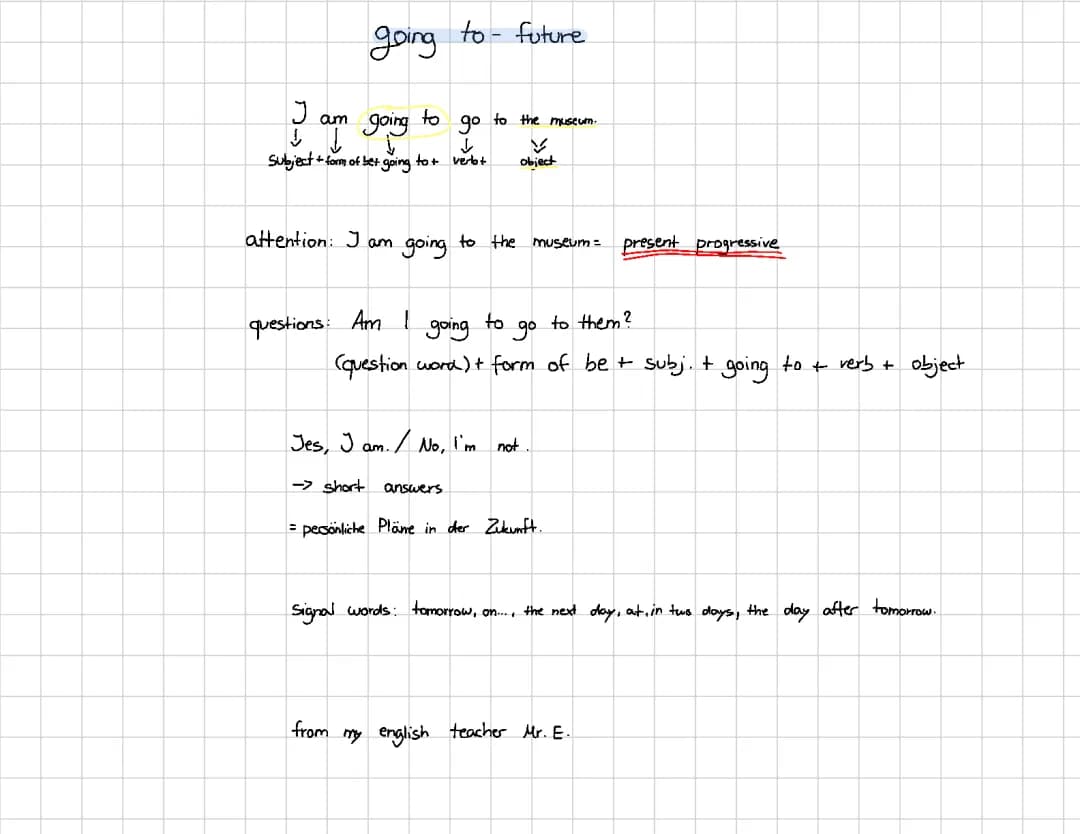 going to - future
I am going to go to the museum.
Subject + form of be + going to + verb + object
attention: I am going to the museum = present progressive
questions: Am I going to go to them?
(question word) + form of be + subj. + going to + verb + object
Yes, I am. / No, I'm not.
→ short answers
= persönliche Pläne in der Zukunft.
Signal words: tomorrow, on..., the next day, at, in two days, the day after tomorrow.
from my english teacher Mr. E.